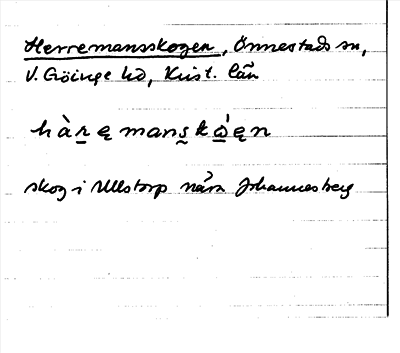 Herremansskogen, Önnestads sn,
V. Göinge hd, Krist. län
hàręmanskǫ́ęn
skog i Ullstorp nära Johannesberg